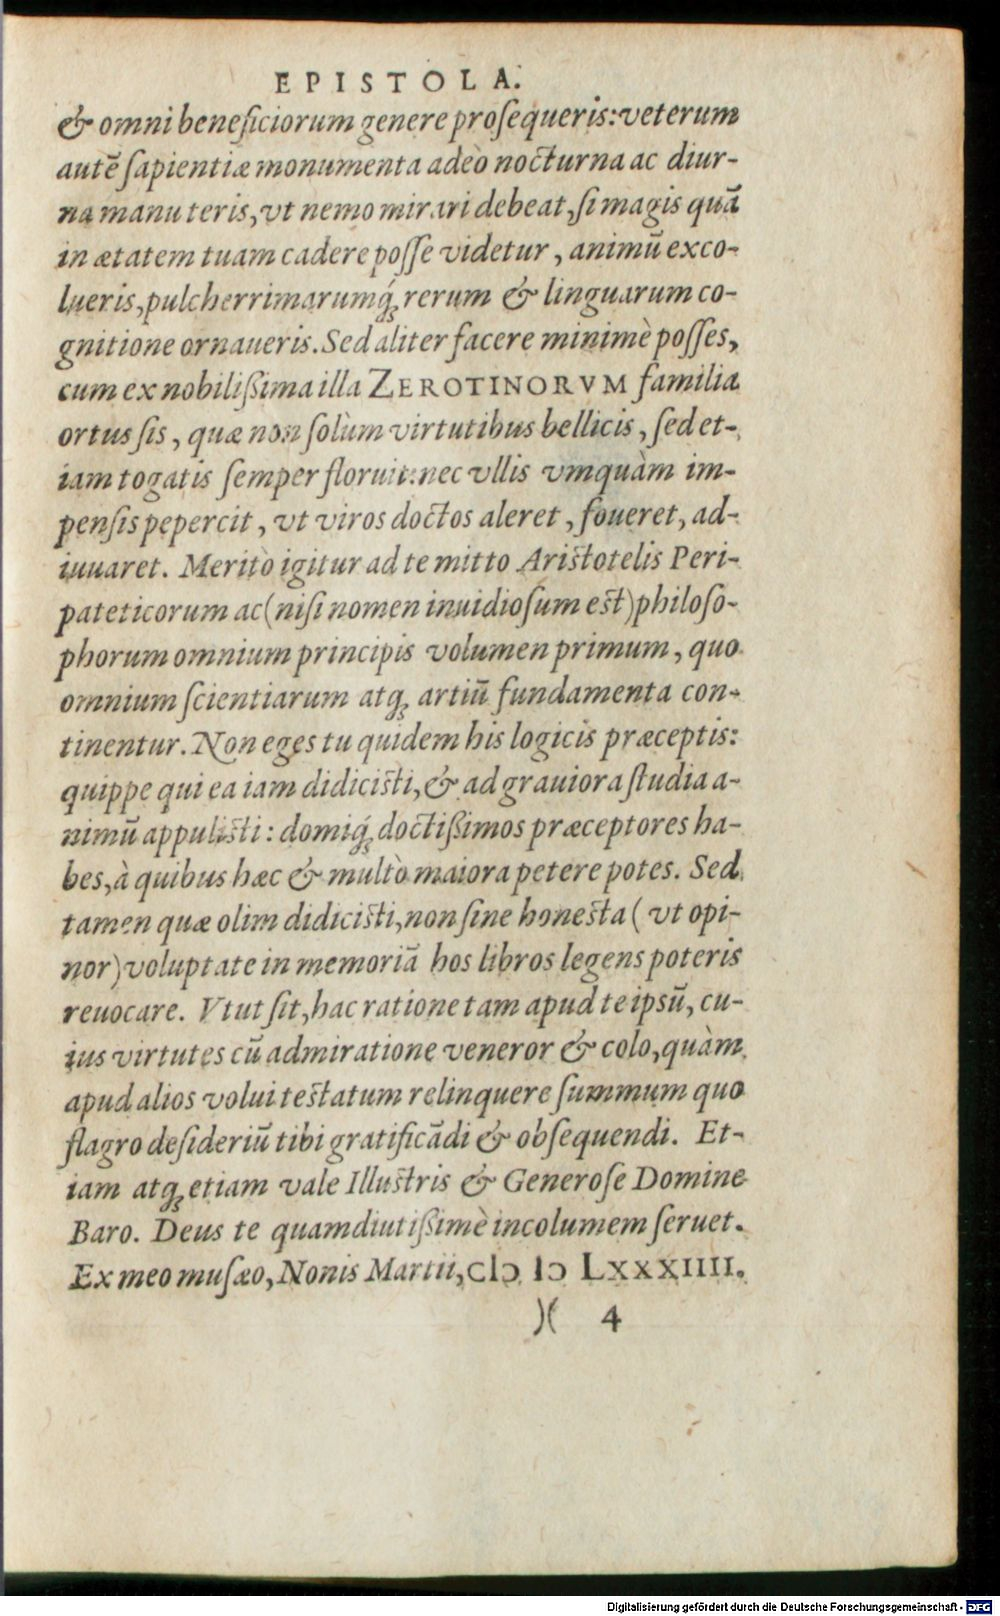 EPISTOLA.
& omni beneficiorum genere prosequeris: veterum
autē sapientiæ monumenta adeò nocturna ac diur-
na manu teris, vt nemo mirari debeat, si magis quā
in ætatem tuam cadere posse videtur, animū exco-
lueris, pulcherrimarumq́; rerum & linguarum co-
gnitione ornaueris. Sed aliter facere minimè posses,
cum ex nobilißima illa ZEROTINORVM familia
ortus sis, quæ non solùm virtutibus bellicis, sed et-
iam togatis semper floruit: nec vllis vmquàm im-
pensis pepercit, vt viros doctos aleret, foueret, ad-
iuuaret. Meritò igitur ad te mitto Aristotelis Peri-
pateticorum ac (nisi nomen inuidiosum est) philoso-
phorum omnium principis volumen primum, quo
omnium scientiarum atq; artiū fundamenta con-
tinentur. Non eges tu quidem his logicis præceptis:
quippe qui ea iam didicisti, & ad grauiora studia a-
nimū appulisti: domiq́; doctißimos præceptores ha-
bes, à quibus hæc & multò maiora petere potes. Sed
tamen quæ olim didicisti, non sine honesta (vt opi-
nor) voluptate in memoriā hos libros legens poteris
reuocare. Vtut sit, hac ratione tam apud te ipsū, cu-
ius virtutes cū admiratione veneror & colo, quàm
apud alios volui testatum relinquere summum quo
flagro desideriū tibi gratificādi & obsequendi. Et-
iam atq; etiam vale Illustris & Generose Domine
Baro. Deus te quamdiutißimè incolumem seruet.
Ex meo musæo, Nonis Martii, CIↃ IↃ LXXXIIII.
)( 4
Digitalisierung gefördert durch die Deutsche Forschungsgemeinschaft - DFG